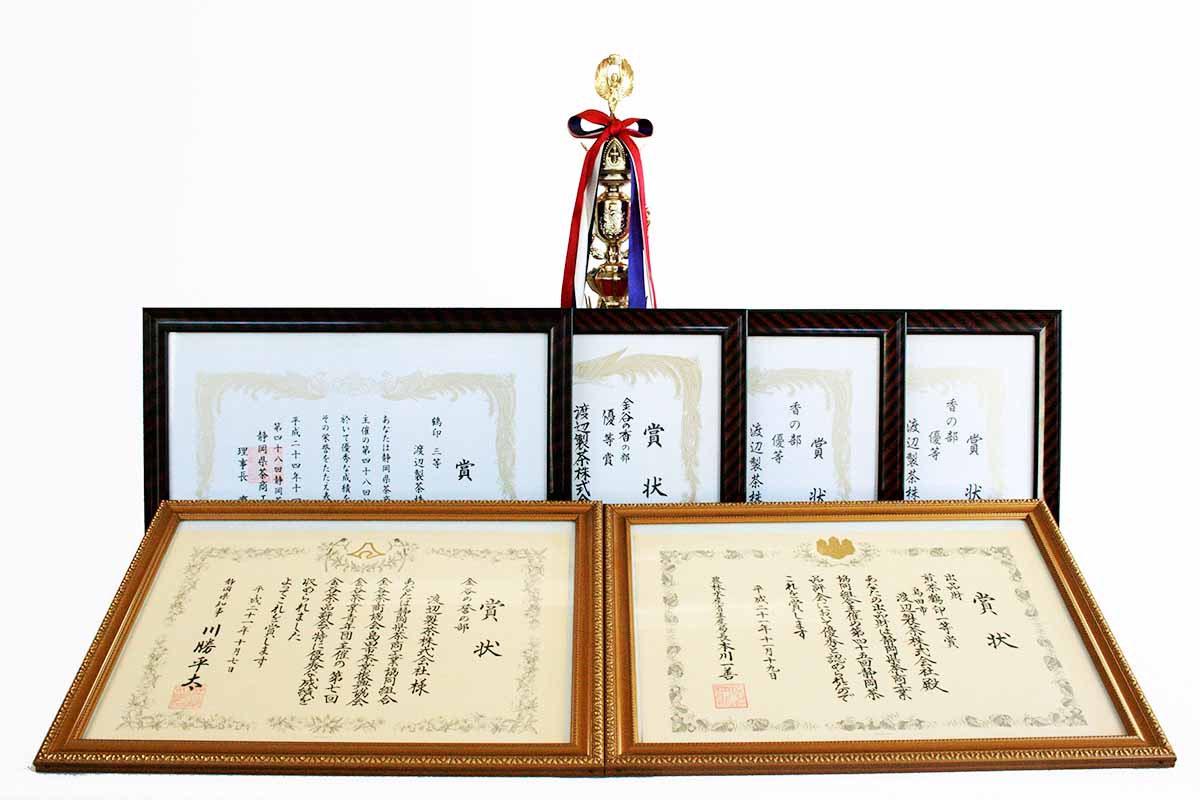 賞
鶴印 三等
渡辺製茶株
あなたは静岡県茶商
主催の第四十八回
於いて優秀な成績を
その栄誉をたたえ
平成二十四年十一
第四十八回静岡
静岡県茶商工
理事長
賞状
金谷の香の部
優等賞
渡辺製茶株式会
賞状
香の部
優等
渡辺製茶株
賞状
香の部
優等
渡辺製茶株
賞状
金谷の香の部
渡辺製茶株式会社 様
あなたは静岡県茶商工業協同組合
金谷茶商組合島田市茶業振興協会
主催の第七回
金谷茶品評会で特に優秀な成績を
収められました
よってこれを賞します
平成二十一年十一月七日
静岡県知事 川勝平太
賞状
出品財
煎茶鶴印一等賞
島田市
渡辺製茶株式会社殿
あなたの出品財は静岡県茶商工業
協同組合主催の第四十五回静岡茶
品評会において優秀と認められたので
これを賞します
平成二十一年十一月十九日
農林水産省生産局長 本川一善